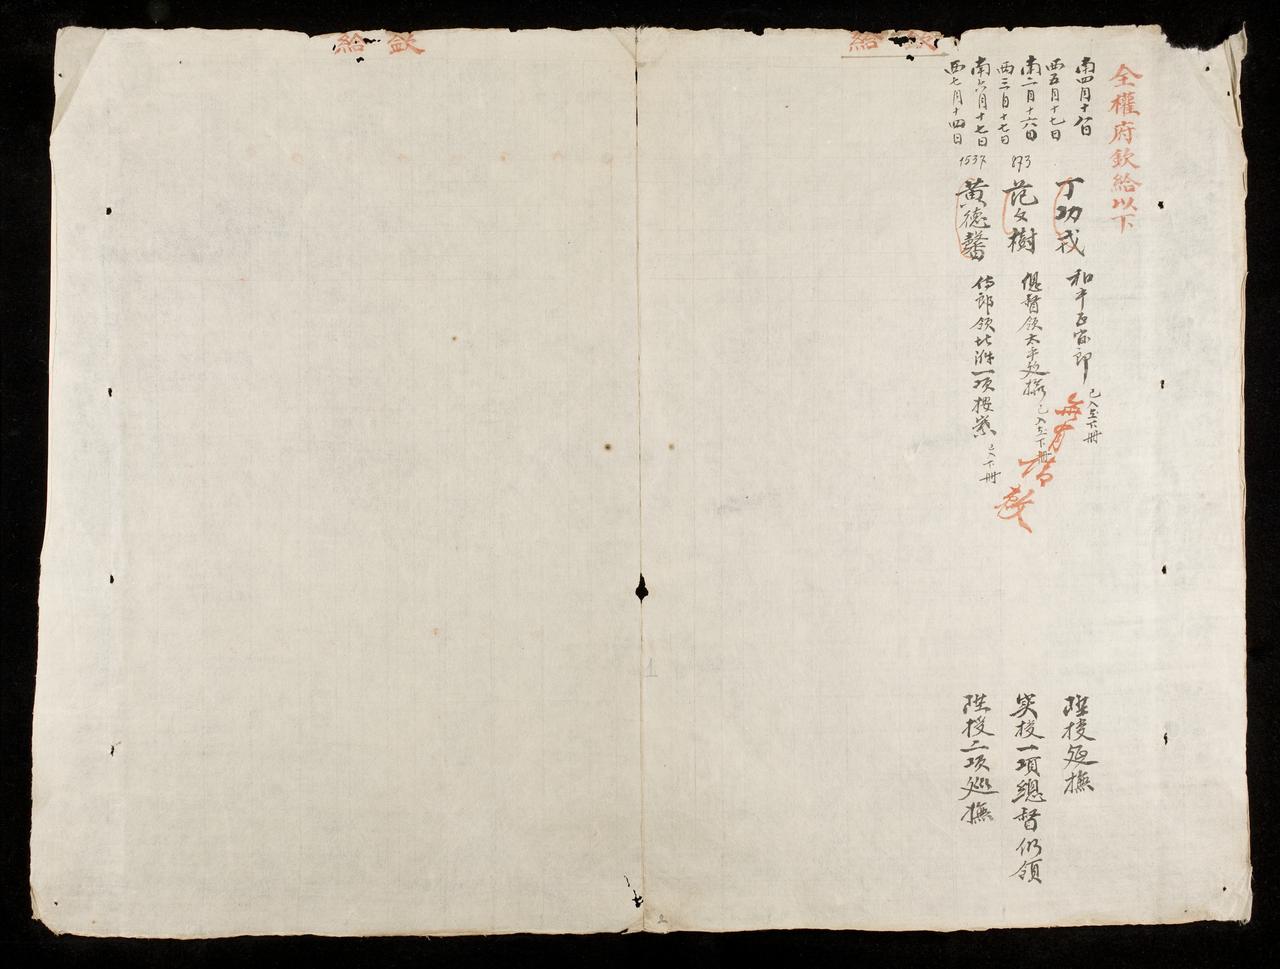 欽給
全權府欽給以下
南四月十八日
西五月十七日
丁功戎
和平正富郎
已入五下冊
陞授廵撫
南二月十六日
西三月十七日
893
范文樹
侶督領太平廵撫
已入五下冊
实授一項總督仍領
南六月十七日
西七月十四日
1537
黃德馨
侍郎領北 一項按察
已入下冊
陞授二項廵撫
欽給
1
2